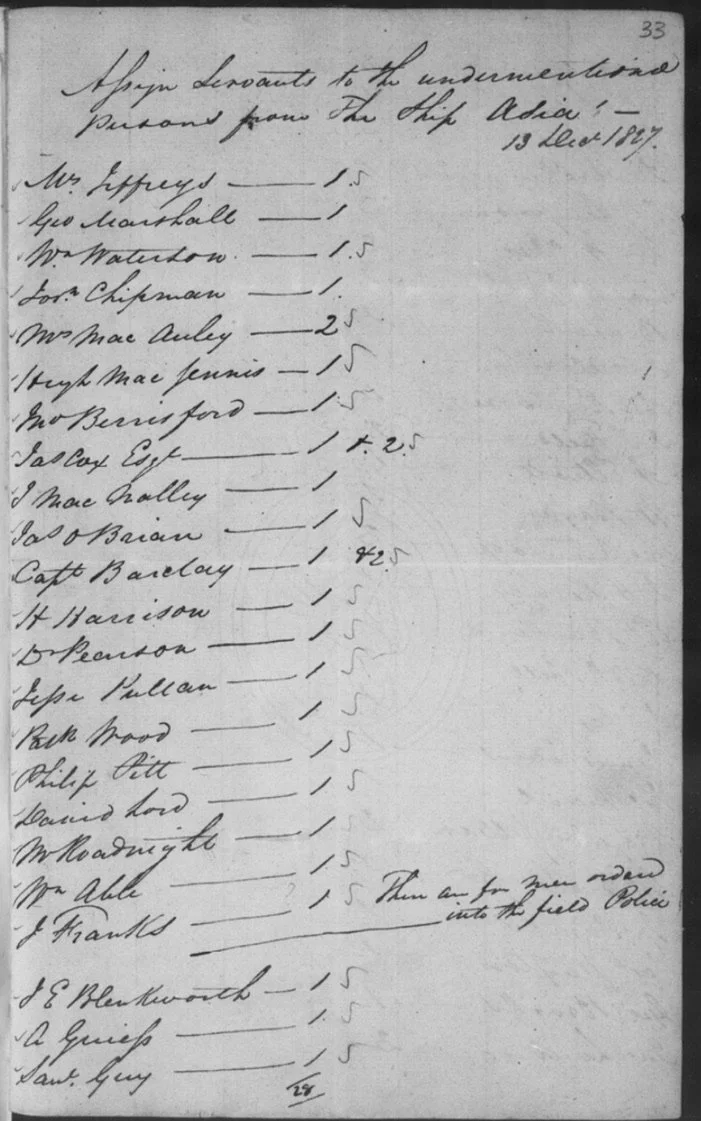 33
Assign Servants to the undermentioned
Persons from The Ship Asia : —
13 Decr 1827.
Mr. Jeffreys — 1
Geo Marshall — 1
Wm Waterson — 1
Chipman — 1.
Mrs Mac Auley — 2
Hugh Mac Jennis — 1
Jno Berrisford — 1
Jas Cox Esqr — 1 & 2
J Mac Nalley — 1
Jas O Brian — 1
Capt Barclay — 1 & 2
H Harrison — 1
Dr Pearson — 1
Jesse Pullan — 1
Wood — 1
Philip Pitt — 1
David Lord — 1
Mr Roadnight — 1
Wm Able — 1
J Franks — 1
for men
into the field Police
J E Blenkworth — 1
A — 1
Saml. Guy — 1
28